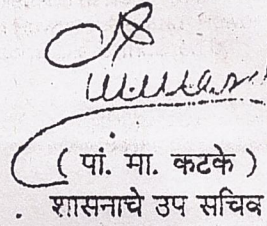 ( पां. मा. कटके )
शासनाचे उप सचिव